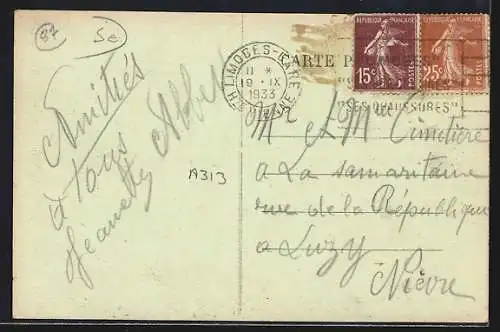 87
5e
Amitiés
à tous
Jeannette Albert
A313
LIMOGES-GARE
11 *
19 - IX
1933
HTE VIENNE
CARTE P
REPUBLIQUE FRANÇAISE
15c
POSTES
REPUBLIQUE FRANÇAISE
25c
POSTES
SES CHAUSSURES"
Mr et Mme Cimetière
a La samaritaine
rue de la République
a Luzy
Nièvre